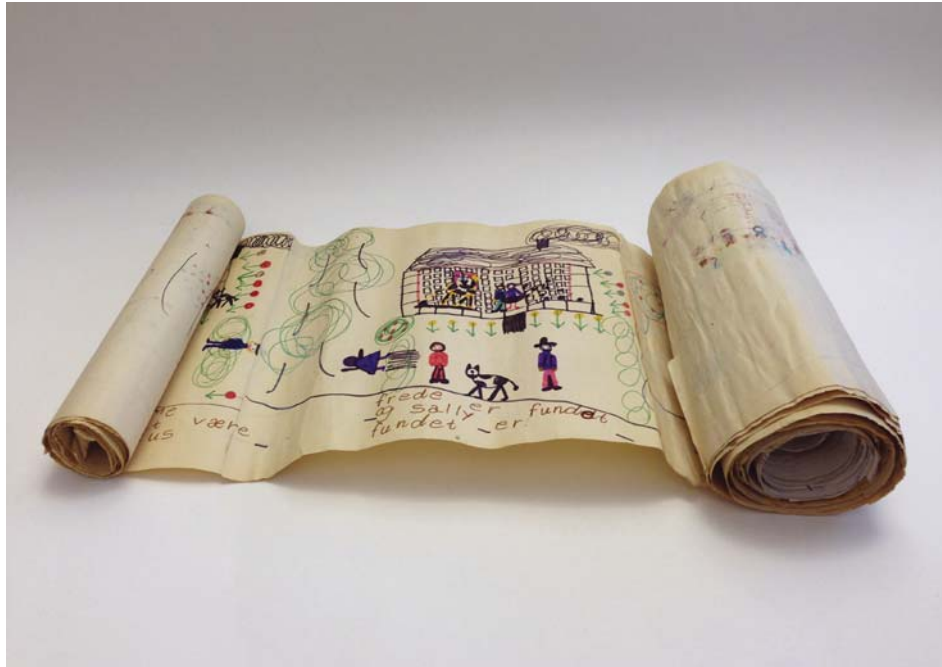 us være_
frede
og sally er fundet
fundet_er.